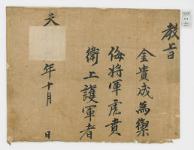 教旨
金貴成為禦
侮將軍虎賁
衛上護軍者
天　年十月　日